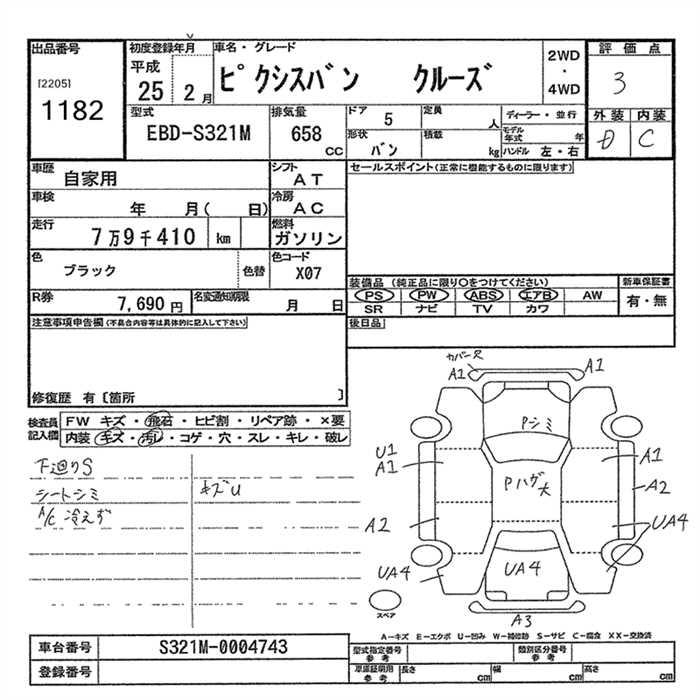 出品番号
[2205]
1182
初度登録年月
平成
25 2月
車名・グレード
ピクシスバン クルーズ
2WD
・
4WD
評価点
3
外装 内装
D C
型式
EBD-S321M
排気量
658
CC
ドア
5
定員
人
ディーラー・並行
形状
バン
積載
kg
モデル年式
年
ハンドル 左・右
車歴
自家用
シフト
AT
車検
年 月( 日)
冷房
AC
走行
7万9千410 km
燃料
ガソリン
色
ブラック
色替
色コード
X07
R券
7,690 円
名変通知期限
月 日
セールスポイント(正常に機能するものに限ります)
装備品 (純正品に限り〇をつけてください)
PS PW ABS エアB AW
SR ナビ TV カワ
新車保証書
有・無
後日品
注意事項申告欄(不具合内容等は具体的に記入して下さい)
修復歴 有〔箇所 〕
検査員記入欄
FW キズ・飛石・ヒビ割・リペア跡・×要
内装 キズ・汚レ・コゲ・穴・スレ・キレ・破レ
下廻りS
シートシミ
キズU
A/C 冷えず
カバー欠
A1
A1
Pシミ
U1
A1
A1
Pハゲ大
A2
A2
UA4
UA4
UA4
A3
スペア
A−キズ E−エクボ U−凹み W−補修跡 S−サビ C−腐食 XX−交換済
車台番号
S321M-0004743
登録番号
型式指定番号
参考
類別区分番号
参考
車庫証明用
参考
長さ
cm
幅
cm
高さ
cm